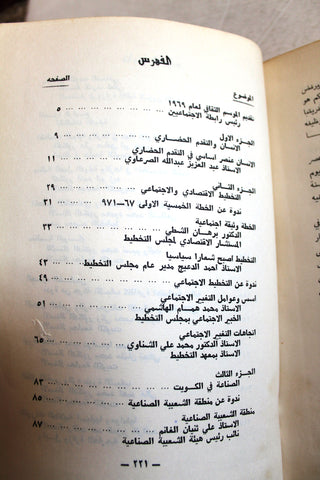 الفهرس
الموضوع
الصفحه
تقديم الموسم الثقافي لعام ١٩٦٩
رئيس رابطة الاجتماعيين ... ... ... ٥
الجزء الاول
الانسان والتقدم الحضاري ... ... ... ٩
الانسان عنصر اساسي في التقدم الحضاري
الاستاذ عبد العزيز عبدالله الصرعاوي ... ١١
الجزء الثاني
التخطيط الاقتصادي والاجتماعي ... ... ٢٩
ندوة عن الخطة الخمسية الاولى ٦٧—٩٧١ ٣١
الخطة وثيقة اجتماعية
الدكتور برهان الشطي ... ... ... ٣٣
المستشار الاقتصادي لمجلس التخطيط
التخطيط اصبح شعارا سياسيا
الاستاذ احمد الدعيج مدير عام مجلس التخطيط... ٤٣
ندوة عن التخطيط الاجتماعي ... ... ... ٤٩
اسس وعوامل التغير الاجتماعي
الاستاذ محمد همسام الهاشمي ... ... ٥١
الخبير الاجتماعي بمجلس التخطيط
اتجاهات التغير الاجتماعي
الاستاذ الدكتور محمد علي الشناوي ... ... ٦٥
الاستاذ بمعهد التخطيط
الجزء الثالث
الصناعة في الكويت ... ... ... ٨٣
ندوة عن منطقة الشعيبة الصناعية ... ... ٨٥
منطقة الشعيبة الصناعية
الاستاذ علي ثنيان الغانم ... ... ... ٨٧
نائب رئيس هيئة الشعيبة الصناعية
— ٢٢١ —